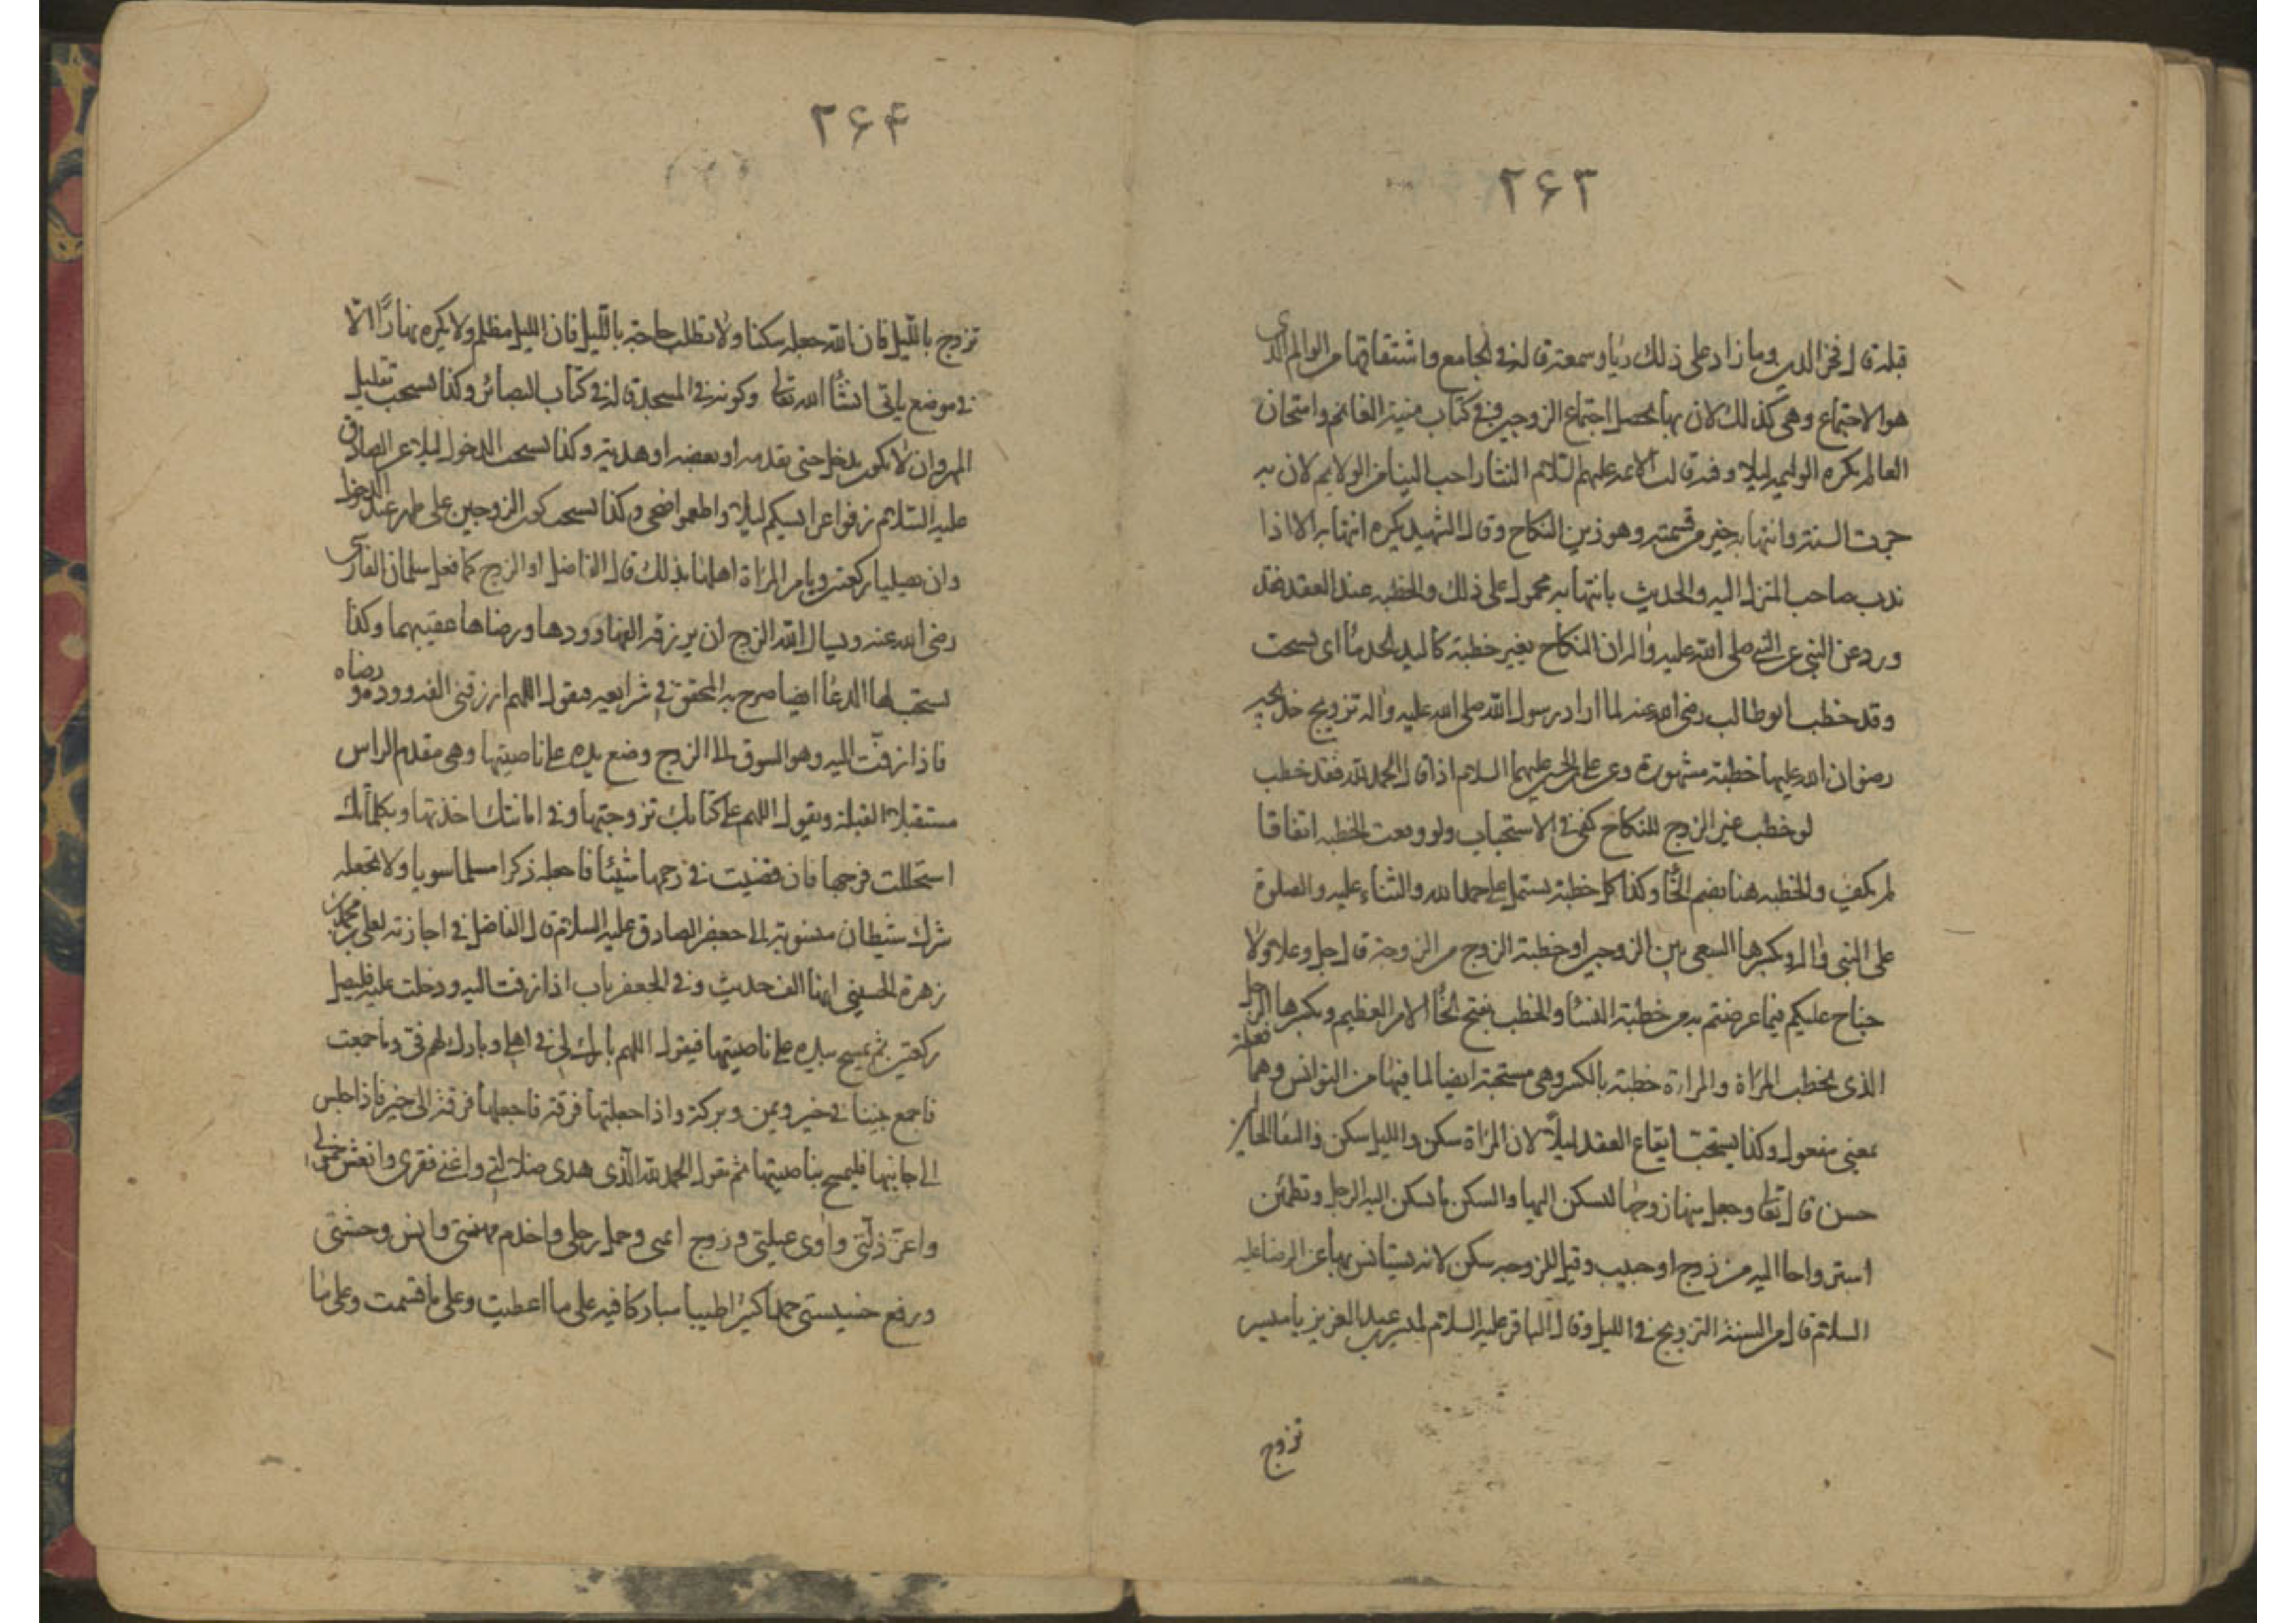 ٢۶٣
قبله قال فخر الدين وما زاد على ذلك رياء وسمعة قاله في الجامع واشتقاقها من الوالم الذى
هو الاجتماع وهى كذلك لان بها يحصل اجتماع الزوجين وفى كتاب منية الغانم وامتحان
العالم يكره الوليمة ليلا وقد قالت الائمة عليهم السلام النثار احب الينا من الولايم لان به
جرت السنة وانتهابه خير من قسمته وهو زين النكاح وقال الشهيد يكره انتهابه الا اذا
ندب صاحب المنزل اليه والحديث بانتهابه محمول على ذلك والخطبة عند العقد فقد
ورد عن النبي صلى الله عليه واله ان النكاح بغير خطبة كاليد الجدماء اى يستحب
وقد خطب ابو طالب رضى الله عنه لما اراد رسول الله صلى الله عليه واله تزويج خديجه
رضوان الله عليها خطبة مشهورة وعن على بن الحسين عليهما السلام اذا قال الحمد لله فقد خطب
لو خطب غير الزوج للنكاح كفى فى الاستحباب ولو وقعت الخطبه اتفاقا
لم يكف والخطبه هنا بضم الخاء وكذا كل خطبة يشتمل على حمد الله والثناء عليه والصلوة
على النبى واله وبكسرها السعى بين الزوجين او خطبة الزوج من الزوجة قال جل وعلا ولا
جناح عليكم فيما عرضتم به من خطبة النساء والخطب بفتح الخاء الامر العظيم وبكسرها الرجل
الذى يخطب المراة والمراة خطبة بالكسر وهى مستحبة ايضا لما فيها من التوانس وهما فعلة
بمعنى مفعول وكذا يستحب ايقاع العقد ليلا لان المراة سكن والليل سكن
حسن قال تعالى وجعل منها زوجها لتسكن اليها والسكن ما يسكن اليه الرجل وتطمئن
استرواحا اليه من زوج او حبيب وقيل للزوجة سكن لانه يستانس بها عن الرضا عليه
السلام قال من السنة التزويج فى الليل وقال الباقر عليه السلام لميسر بن عبد العزيز يا ميسر
تزوج
٢۶۴
تزوج بالليل فان الله جعله سكنا ولا تطلب حاجة بالليل فان الليل مظلم ولا يكره نهارا الا
فى موضع ياتى انشاء الله تعالى وكونه فى المسجد قاله فى كتاب البصائر وكذا يستحب تقليل
المهر وان لا يكون يدخل حتى يقدمه او بعضه او هدية وكذا يستحب الدخول ليلا عن الصادق
عليه السلام زفوا عرايسكم ليلا واطعموا ضحى وكذا يستحب كون الزوجين على طهر عند الدخول
وان يصليا ركعتين ويامر المراة اهلها بذلك قال الفاضل او الزوج كما فعل سلمان الفارسى
رضى الله عنه ويسال الله الزوج ان يرزقه الفها وودها ورضاها عقيبهما وكذا
يستحب لها الدعاء ايضا صرح به المحقق فى شرايعه فيقول اللهم ارزقنى الفه ووده ورضاه
فاذا زفت اليه وهو السوق الى الزوج وضع يده على ناصيتها وهى مقدم الراس
مستقبلا القبلة ويقول اللهم على كتابك تزوجتها وفى امانتك اخذتها وبكلماتك
استحللت فرجها فان قضيت فى رحمها شيئا فاجعله ذكرا مسلما سويا ولا تجعله
شرك شيطان منسوبة الى جعفر الصادق عليه السلام قال الفاضل فى اجازته لعلى بن محمد بن
زهرة الحسينى انها الف حديث وفى الجعفريات اذا زفت اليه ودخلت عليه فليصل
ركعتين ثم يمسح بيده على ناصيتها فيقول اللهم بارك لى فى اهلى وبارك لهم فى وما جمعت
فاجمع بيننا فى خير ويمن وبركة واذا جعلتها فرقة فاجعلها فرقة الى خير فاذا جلس
الى جانبها فليمسح بناصيتها ثم يقول الحمد لله الذى هدى ضلالتى واغنى فقرى وانعش خمولى
واعز ذلتى واوى عيلتى وزوج ايمى وحمل رحلى واخدم مهنتى وانس وحشتى
ورفع خسيستى حمدا كثيرا طيبا مباركا فيه على ما اعطيت وعلى ما قسمت وعلى ما